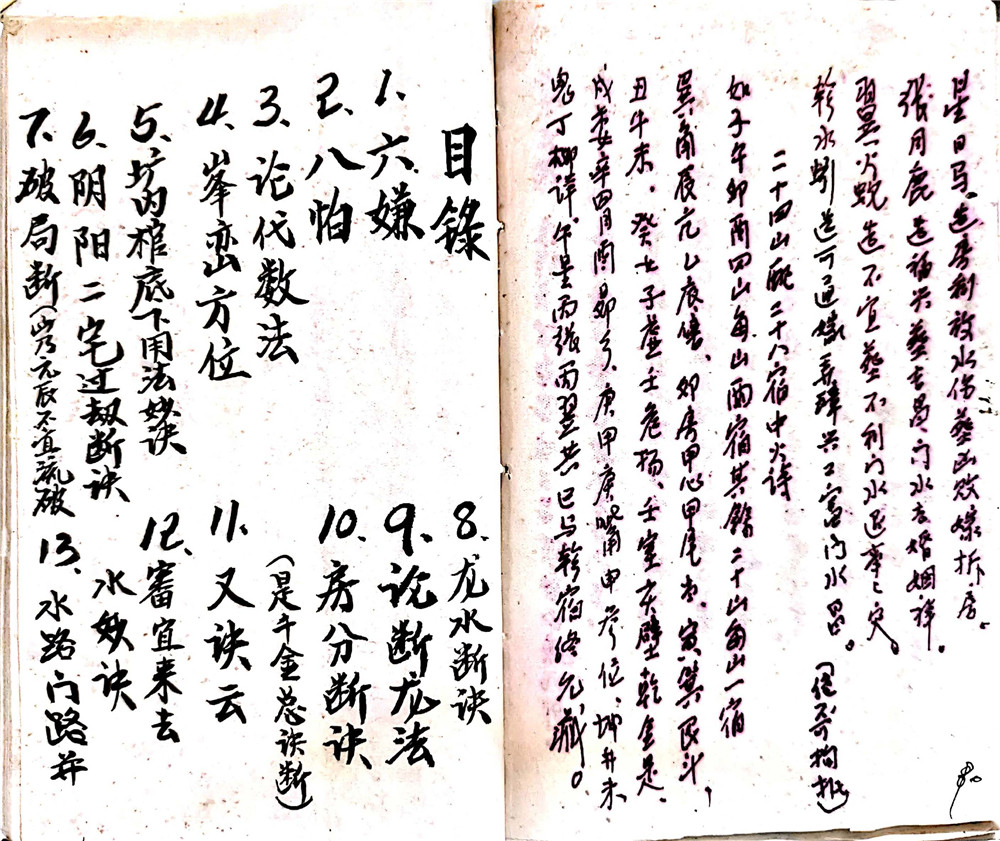 星日马。造房利放水伤葬凶败嫁拆房。
张月鹿造福兴葬吉昌门水吉婚姻祥。
翌火蛇造不宜葬不利门水退事灾。
轸水蚓造可通嫁弄璋兴工富门水昌。
二十四山配二十八宿中火诗
如子午卯酉四山每山两宿其馀二十山每山一宿
巽角辰亢乙底、卯房甲心甲尾、寅箕艮斗，
丑牛未。癸女子虚壬危扬、壬室亥壁乾奎是、
戌娄辛、庚嘴申参位、坤井未
鬼丁柳详、午星丙张丙翌共巳与轸宿终允臧。
目錄
1、六嫌
2、八怕
3、论代数法
4、峯峦方位
5、圹内棺底下用法妙诀
6、阴阳二宅过劫断诀
7、破局断（山乃元辰不宜流破
8、龙水断诀
9、说断龙法
10、房分断诀
（是千金总诀断）
11、又诀云
12、審宜来去
水妙诀
13、水路门路并